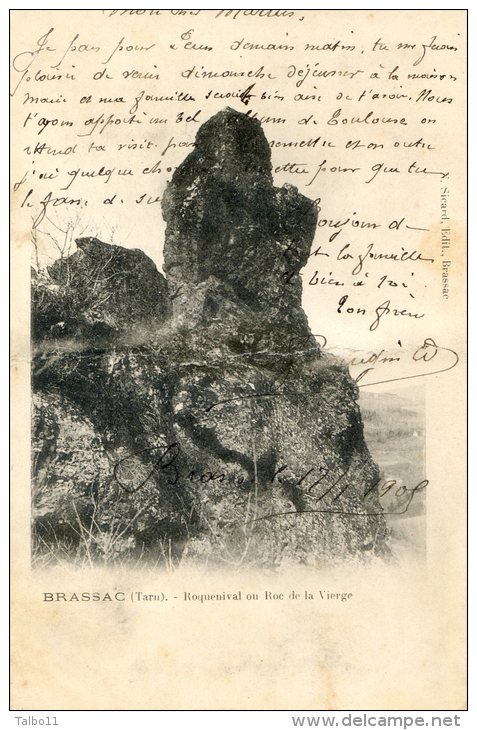 Mon cher Martin,
Je pars pour Leun demain matin, tu me ferais
plaisir de venir dimanche déjeuner à la maison
Marie et ma famille seront bien aise de t'avoir. Nous
t'avons apporté un bel album de Toulouse on
attend ta visite pour
j'ai quelque chose pour que tu
le fasse de
Toujours de
la famille
bien à toi
ton frère
Brassac le 17/1 1905
N. Sicard, Edit., Brassac
BRASSAC (Tarn). - Roquenival ou Roc de la Vierge
Talbo11
www.delcampe.net